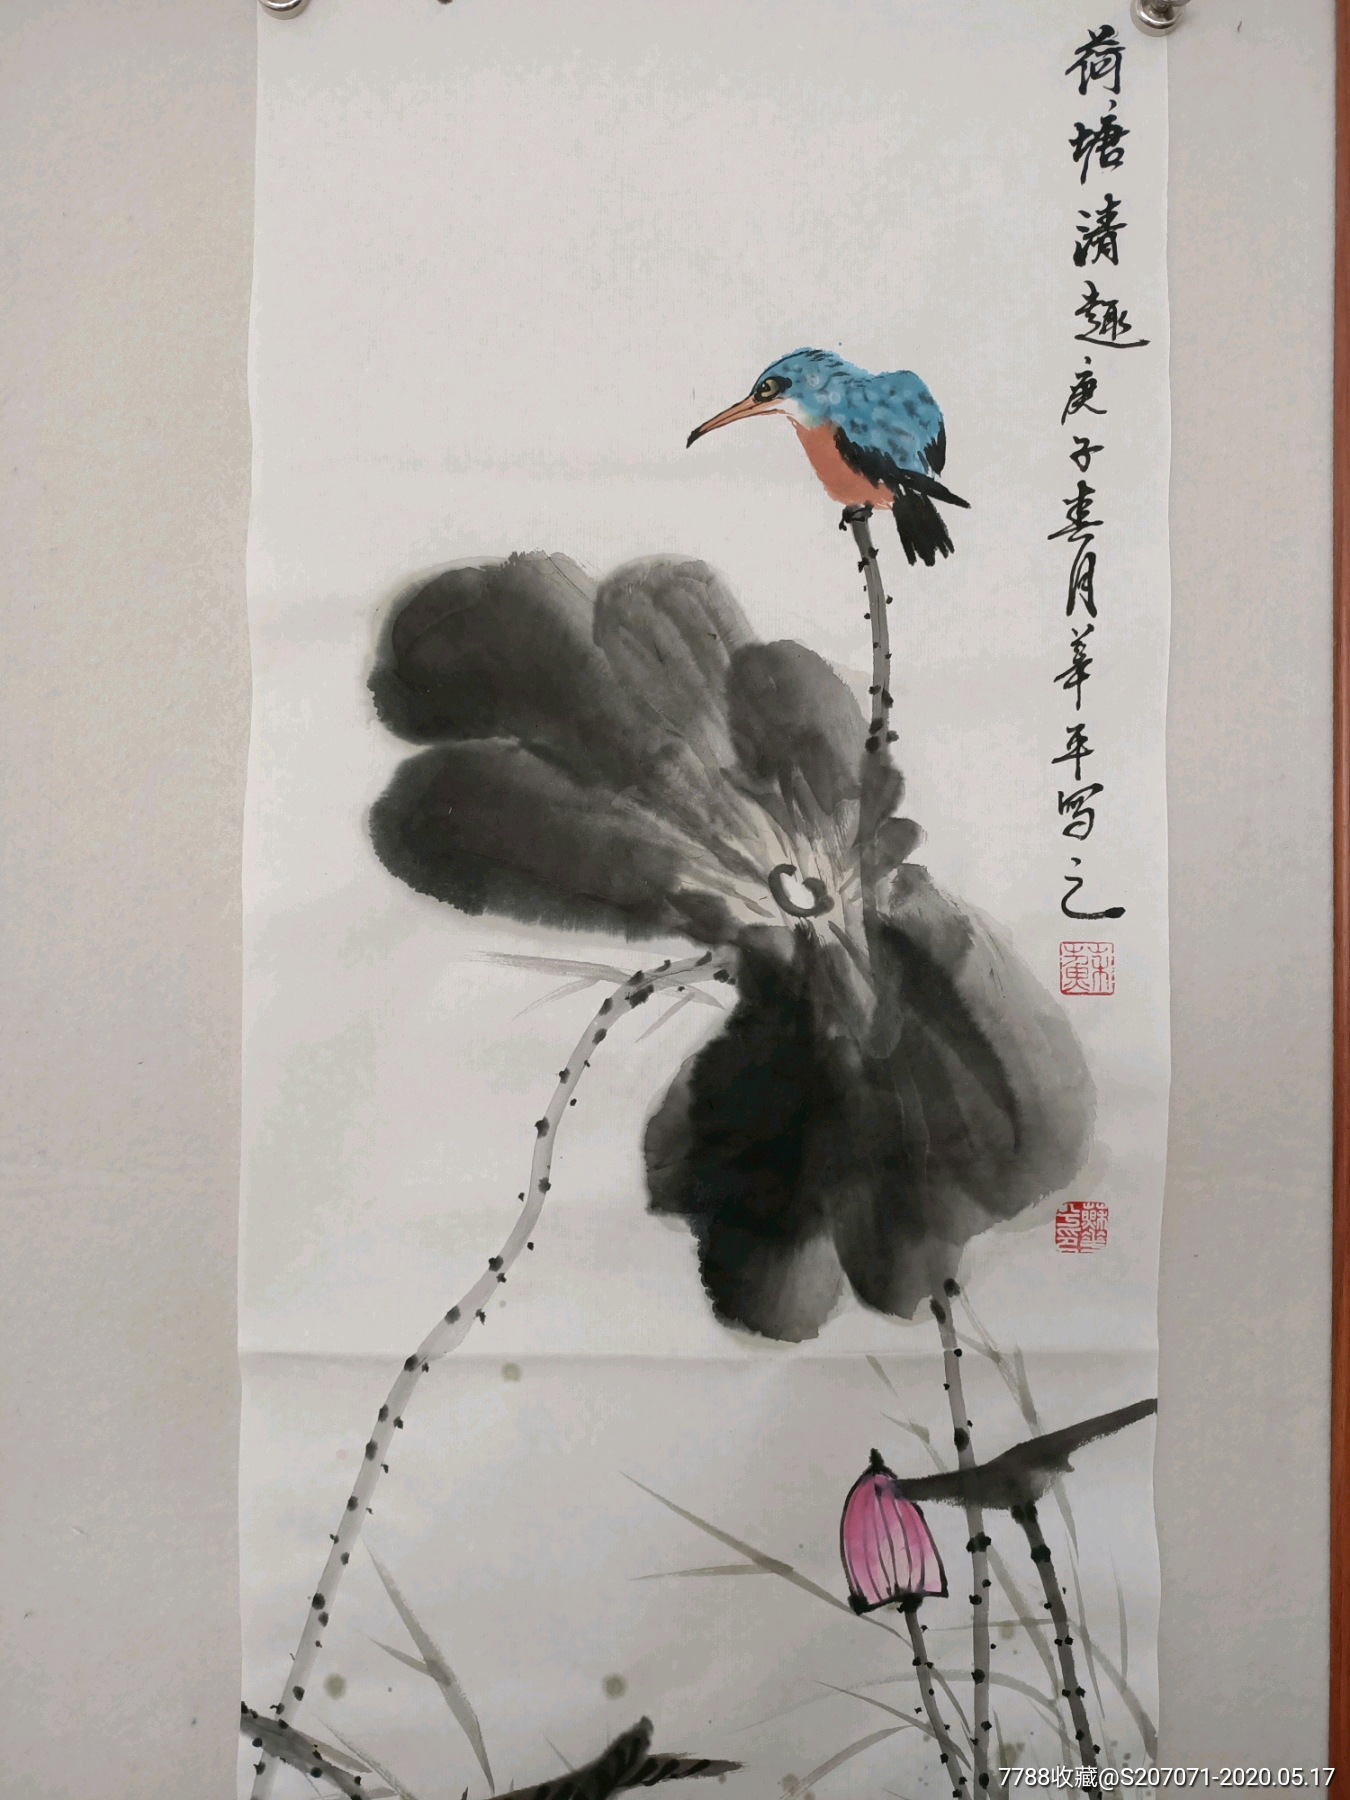 荷塘清趣庚子春月華平写之
7788收藏@S207071-2020.05.17